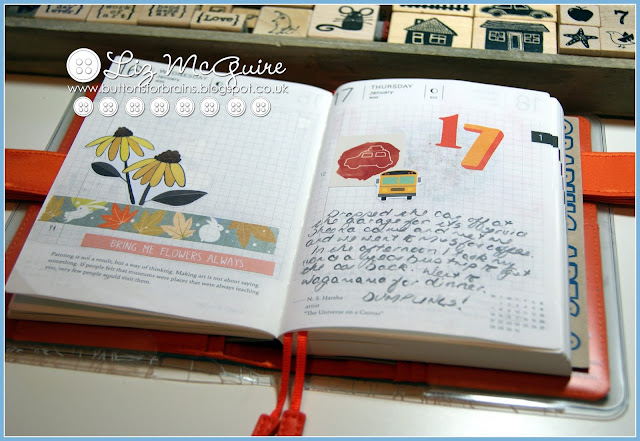 [Love]
Liz McGuire
www.buttonsforbrains.blogspot.co.uk
BRING ME FLOWERS ALWAYS
14
Painting is not a result, but a way of thinking. Making art is not about saying
something. If people felt that museums were places that were always teaching
you, very few people would visit them.
17 THURSDAY
January
18
17
1
12
Dropped the car off at
the garage for its service
and we went to for coffee.
In the afternoon I took my
bus trip to get
the car back. Went to
Wagamama for dinner.
DUMPLINGS!
— N. S. Harsha
artist
"The Universe on a Canvas"
GRAPHIC ARTS